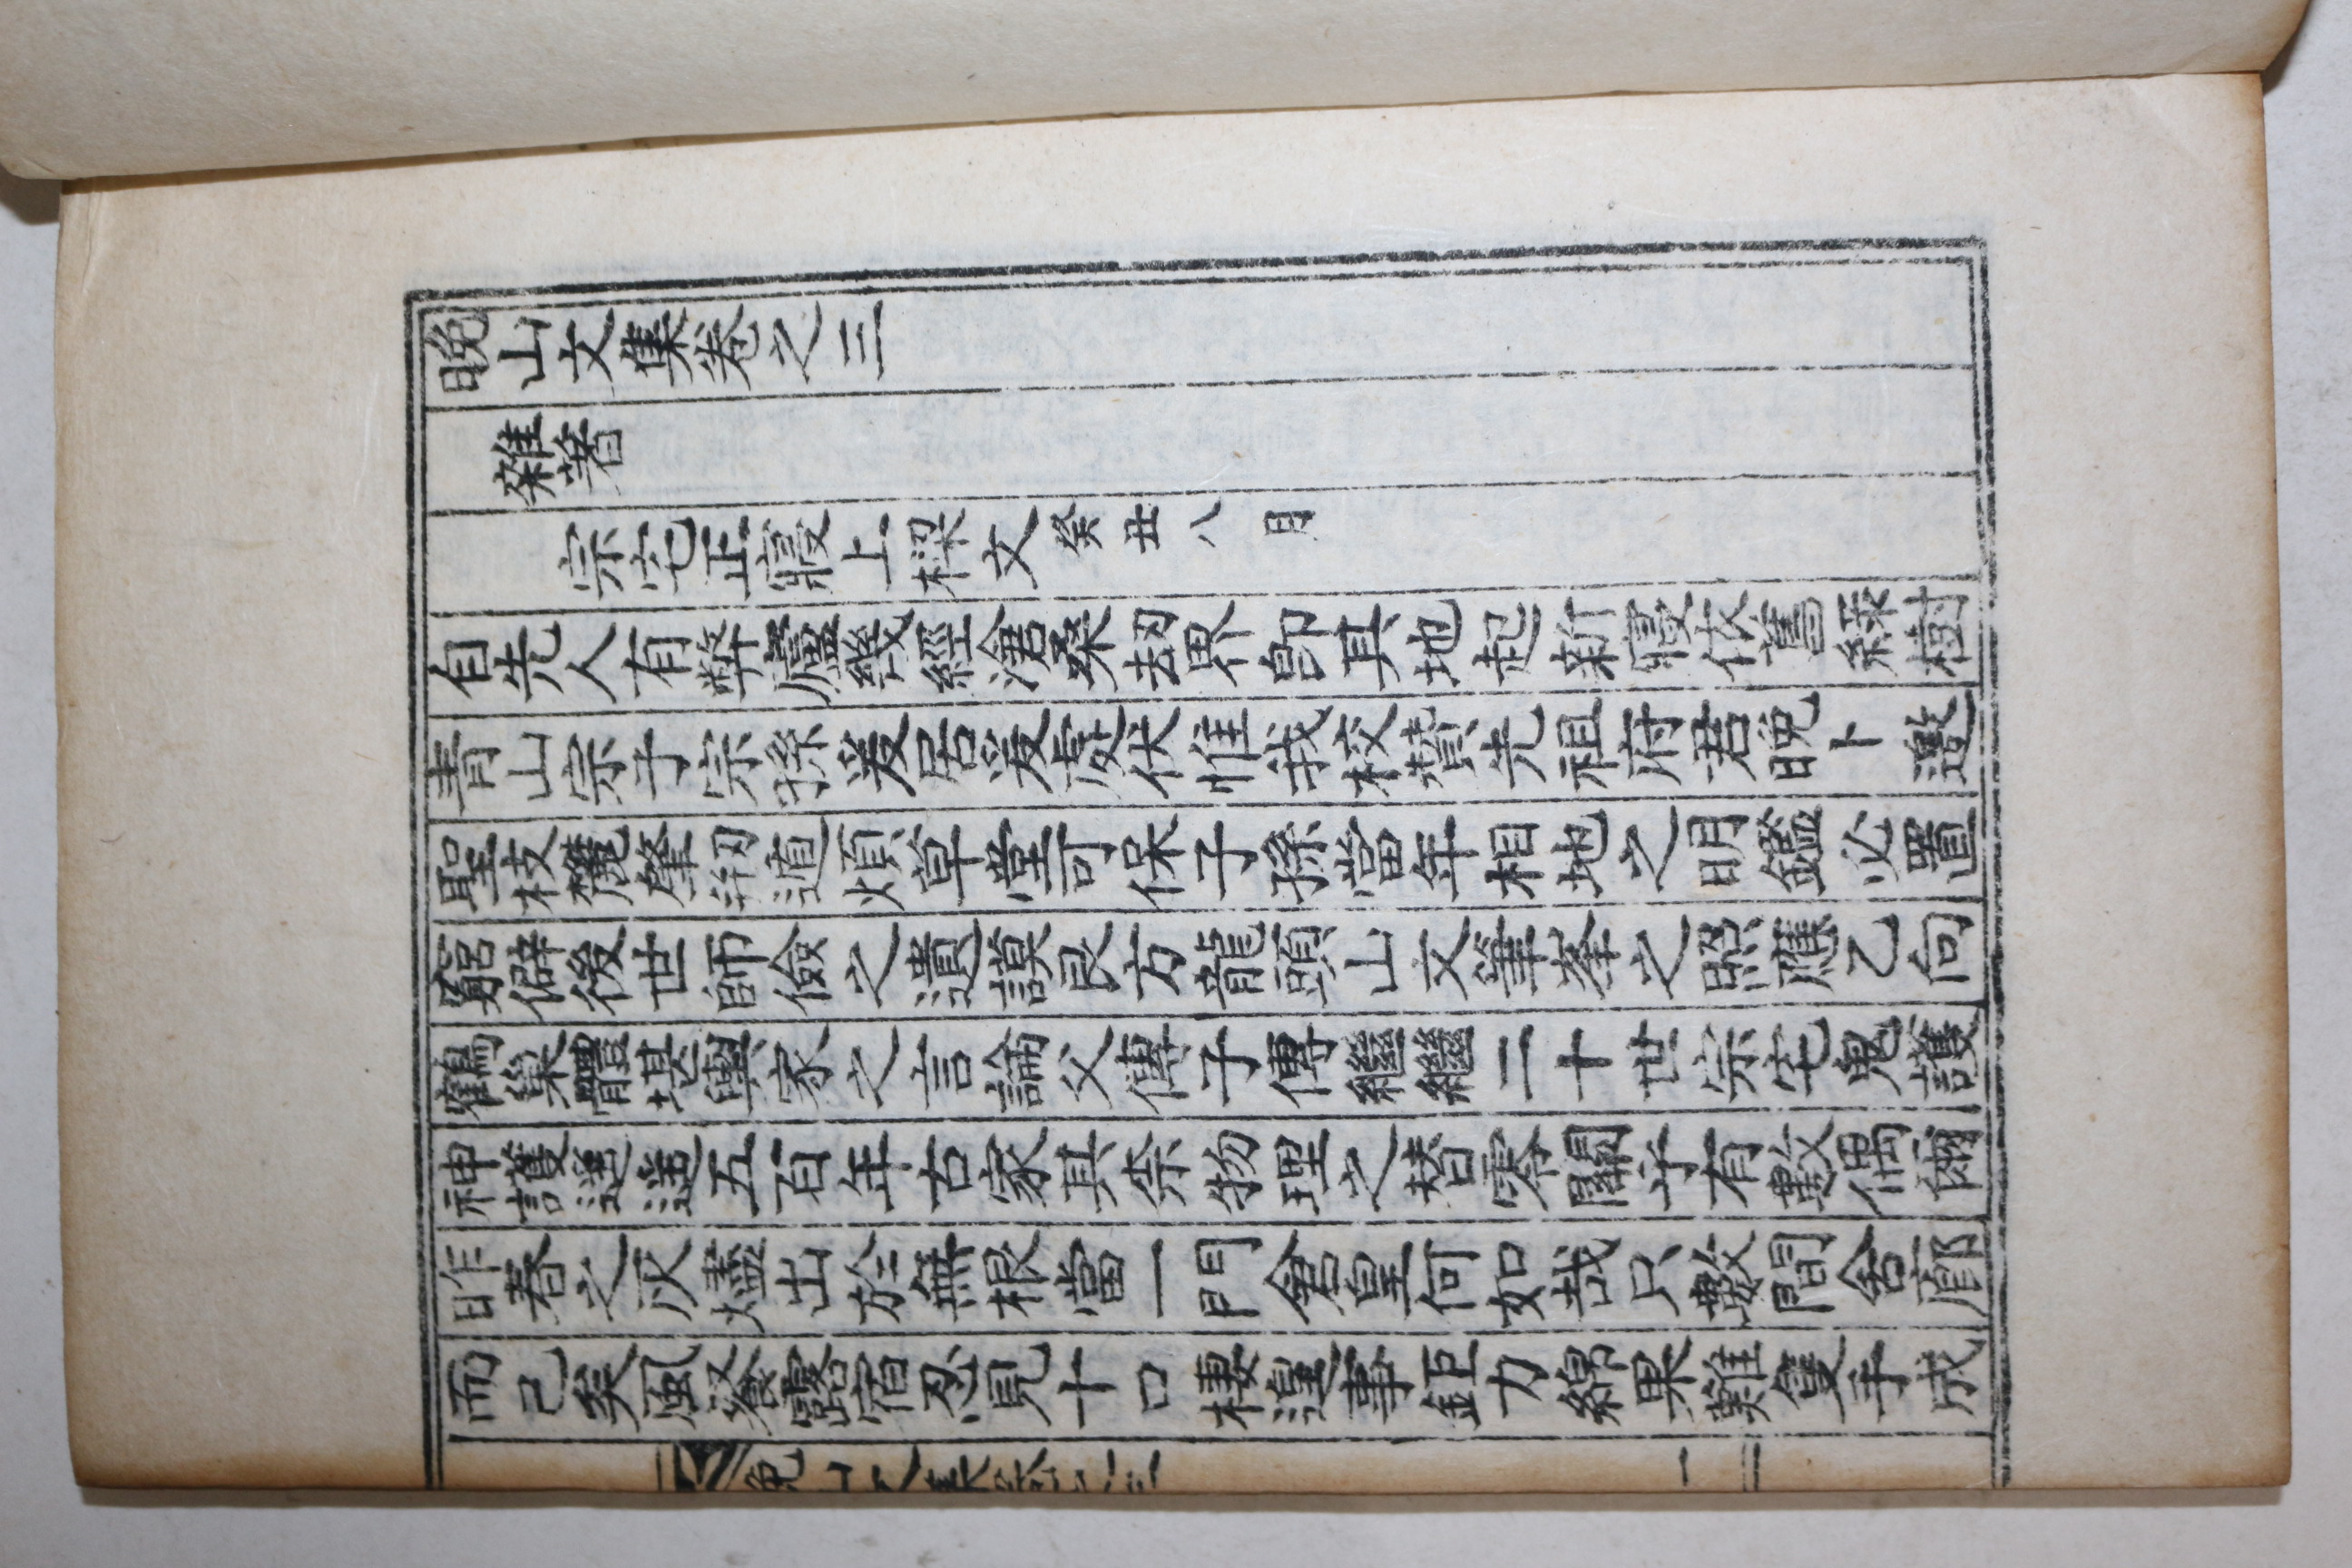 晩山文集卷之三
雜著
宗宅正寢上樑文 癸丑八月
自先人有弊廬幾經滄桑劫界卽其地起新寢依舊綠樹
青山宗子宗孫爰居爰處伏惟我校贊先祖府君晩卜邀
聖枝麓肇刱遁煩草堂可保子孫當年相地之明鑑必置
窮僻後世師儉之遺謨艮方龍頭山文筆峯之照應乙向
鶴巢體堪輿家之言論父傳子傳繼繼二十世宗宅鬼護
神護遥遥五百年古家其柰物理之替零關乎有數偶爾
昨春之灰燼出於無根當一門倉皇何如哉只數間舍廊
而已矣風餐露宿忍見十口棲遑事鉅力綿果難隻手成
晩山文集卷之三 一